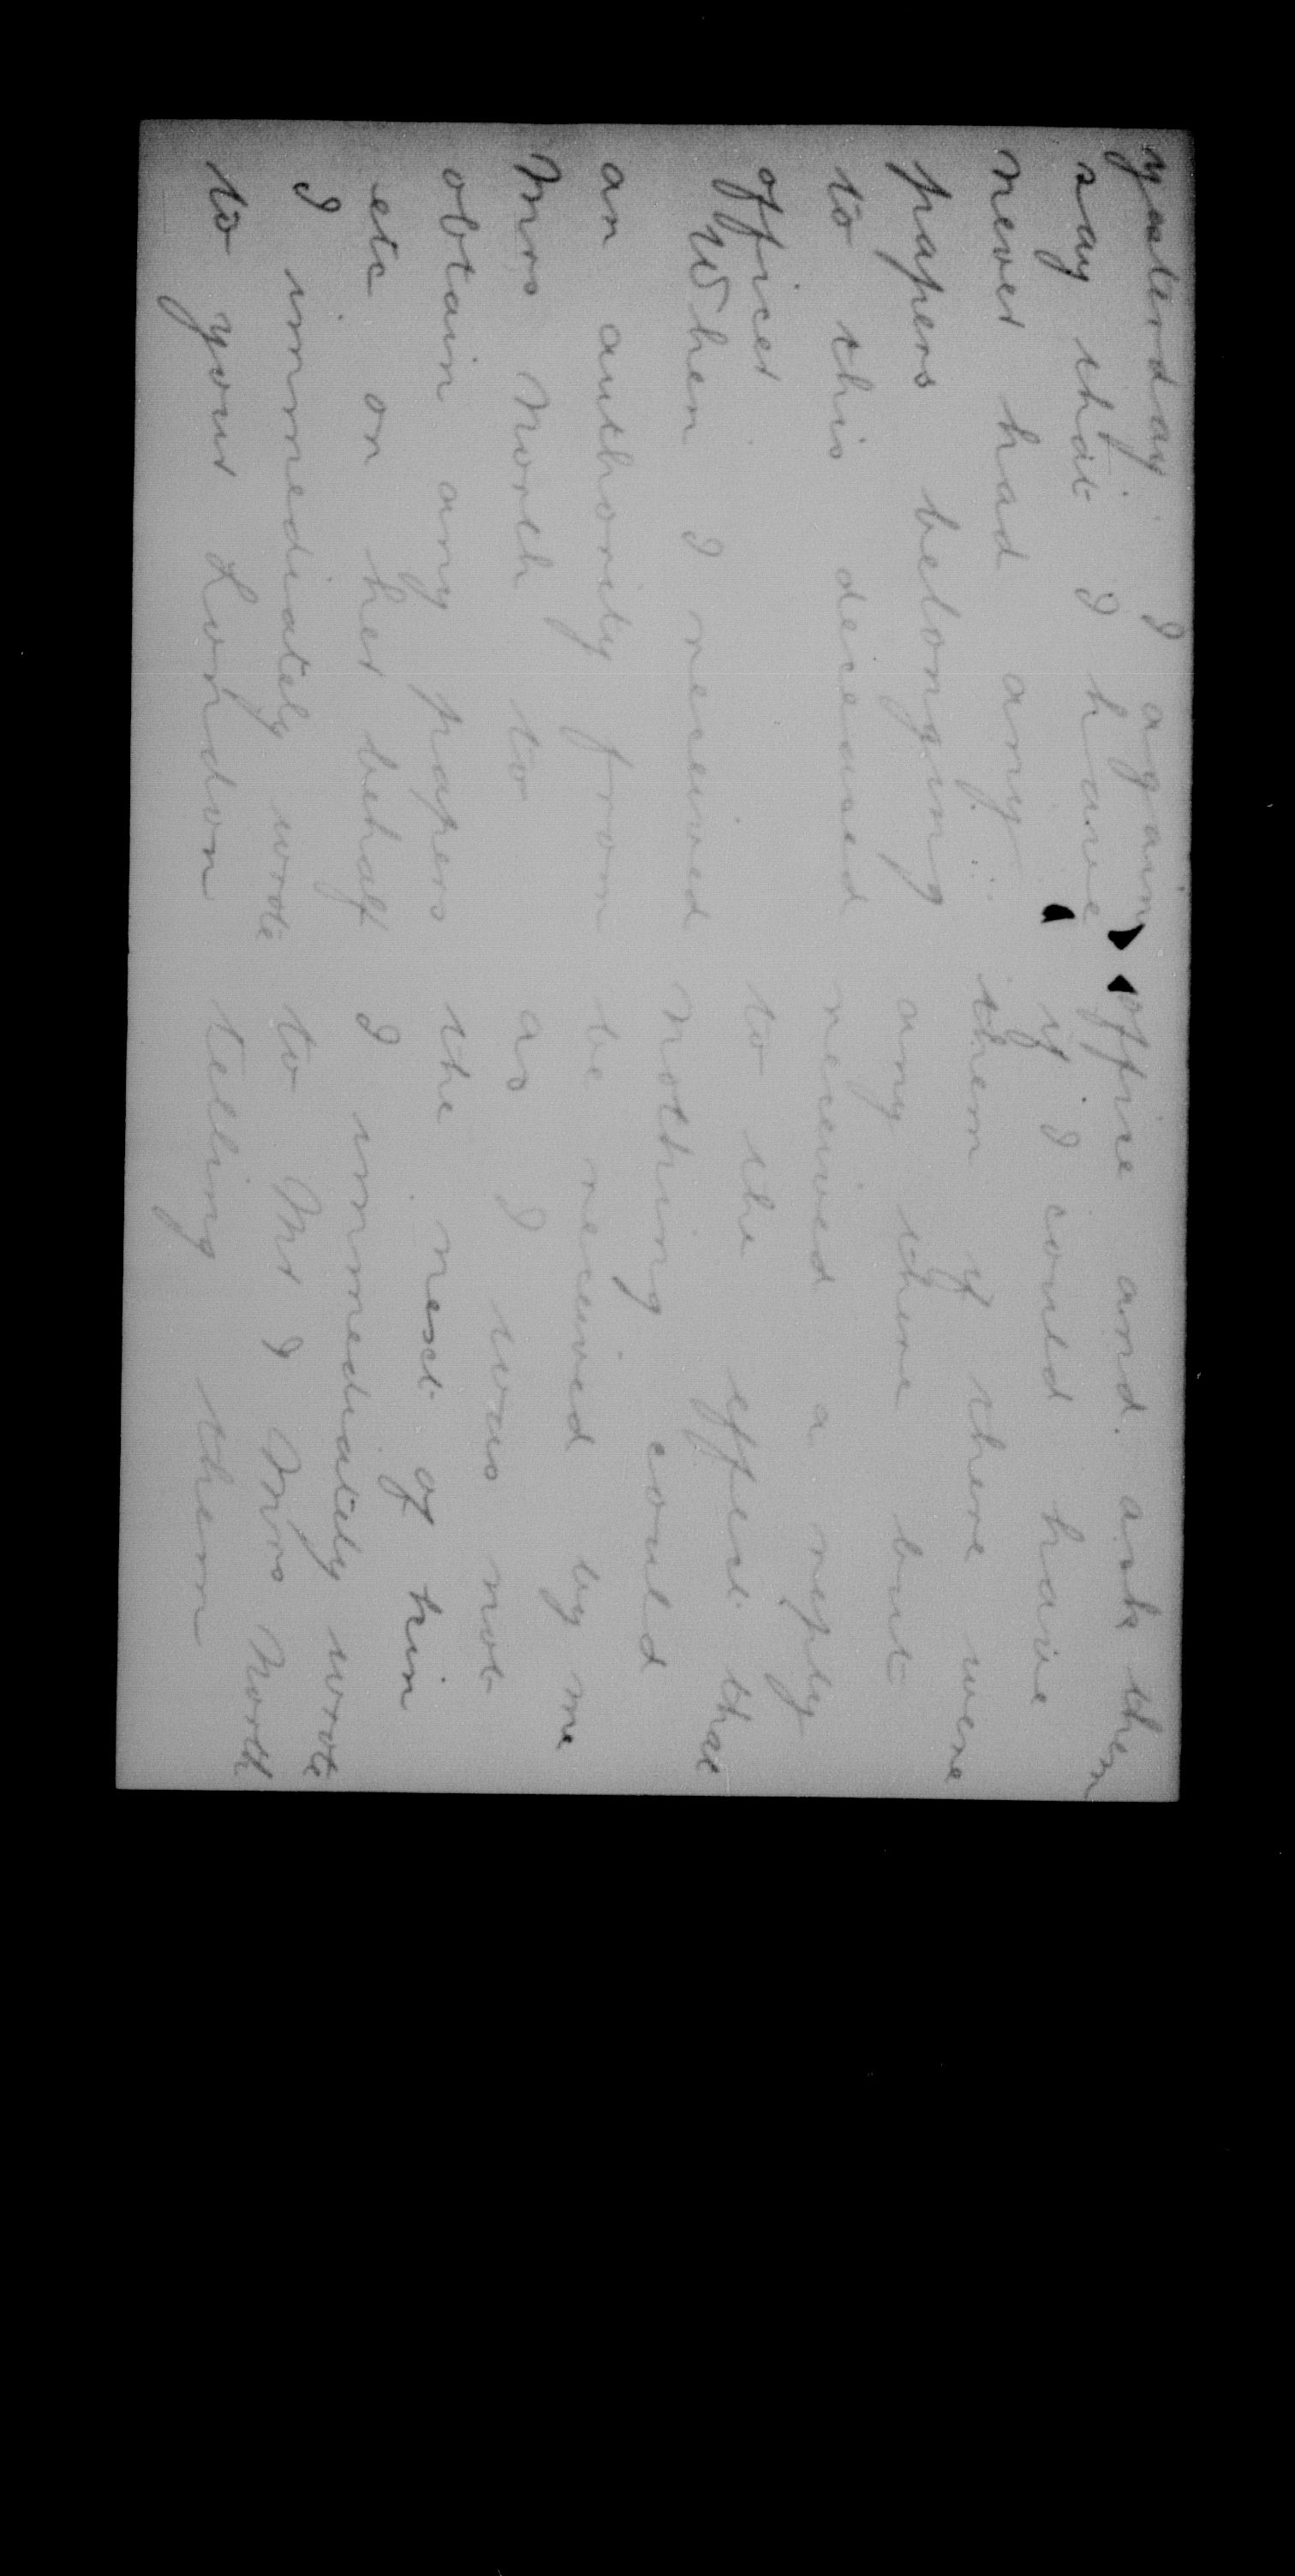 yesterday. I again
say that I have
never had any
papers belonging
to this deceased
officer
When I received
an authority from
Mrs North to
obtain any papers
etc on her behalf
I immediately wrote
to your London
office and ask them
if I could have
them if there were
any there but
received a reply
to the effect that
nothing could
be received by me
as I was not
the next of kin
I immediately wrote
to Mr & Mrs North
telling them